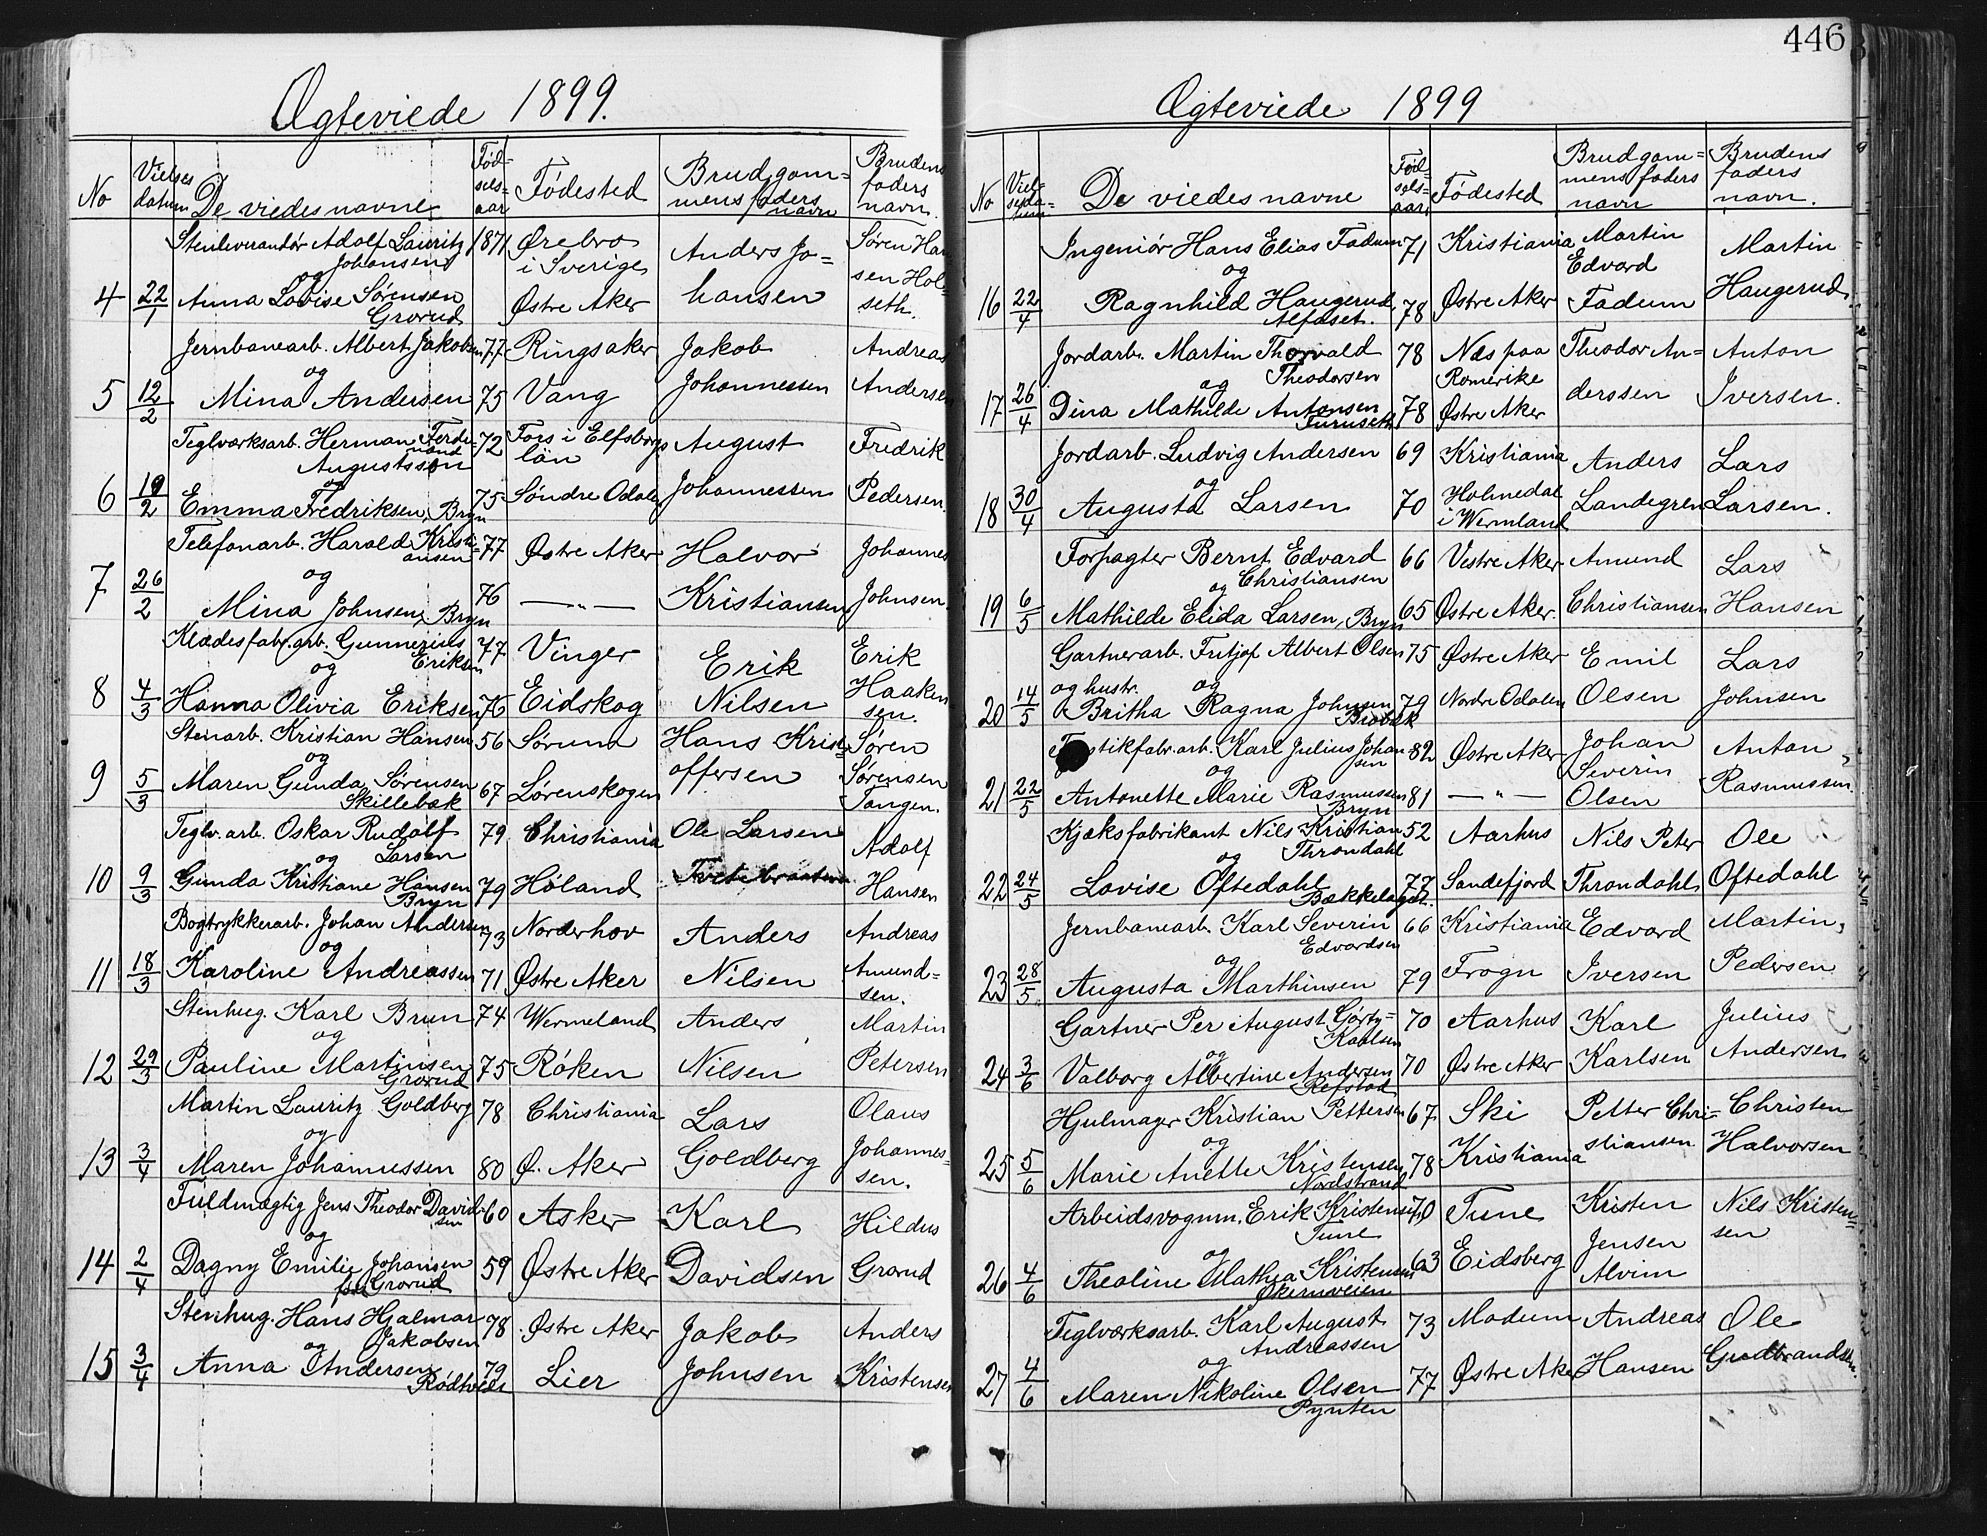 446
Ægteviede 1899.
No
Vielses datum
De viedes navne
Fød-sels-aar
Fødested
Brudgom-mens faders navn
Brudens faders navn.
Stenleverandør Adolf Lauritz 1871 Ørebro Anders Jo- Søren Han
Johansen i Sverige sen Hol-
og
4 22/1 Anna Lovise Sørensen Østre Aker hansen seth.
Grorud
Jernbanearb. Albert Jakobsen 77 Ringsaker Jakob Andreas
og
5 12/2 Mina Andersen 75 Vang Johannessen Andersen
Teglværksarb. Herman Ferdi- 72 Fors i Elfsborgs August Fredrik
nand
Augustssøn län
og
6 19/2 Emma Fredriksen, Bryn 75 Søndre Odalen Johannessen Pedersen.
Telefonarb. Harald Kristi- 77 Østre Aker Halvor Johannes
ansen
og
7 26/2 Mina Johnsen, Bryn 76 — " — Kristiansen Johnsen.
Klædesfabr.arb. Gunnerius 77 Vinger Erik Erik
Eriksen
og
8 4/3 Hanna Olivia Eriksen 76 Eidskog Nilsen Haaken
sen.
Stenarb. Kristian Hansen 56 Sørum Hans Krist- Søren
og
9 5/3 Maren Gunda Sørensen 67 Lørenskogen offersen Sørensen
Skillebæk Tangen.
Teglv.arb. Oskar Rudolf 79 Christiania Ole Larsen Adolf
og Larsen
10 9/3 Gunda Kristiane Hansen 79 Høland Tvetebraaten Hansen
Bryn
Bogtrykkerarb. Johan Andersen 73 Norderhov Anders Andreas
og
11 18/3 Karoline Andreassen 71 Østre Aker Nilsen Amund-
sen.
Stenhug. Karl Brun 74 Wermeland Anders Martin
og
12 29/3 Pauline Martinsen 75 Røken Nilsen Petersen
Grorud
Martin Lauritz Goldberg 78 Christiania Lars Olaus
og
13 3/4 Maren Johannessen 80 Ø. Aker Goldberg Johannes-
sen.
Fuldmægtig Jens Theodor David- 60 Asker Karl Hildus
sen
og
14 2/4 Dagny Emilie Johansen 59 Østre Aker Davidsen Grorud
Grorud
Stenhug. Hans Hjalmar 78 Østre Aker Jakob Anders
og Jakobsen
15 3/4 Anna Andersen 79 Lier Johnsen Kristensen
Rødtvedt
Ægteviede 1899
No
Viel-sesda-tum
De viedes navne
Fød-sels-aar
Fødested
Brudgom-mens faders navn
Brudens faders navn.
Ingeniør Hans Elias Fadum 71 Kristiania Martin Martin
og Edvard
16 22/4 Ragnhild Haugerud 78 Østre Aker Fadum Haugerud.
Alfaset.
Jordarb. Martin Thorvald 78 Næs paa Theodor An- Anton
og Theodorsen Romerike
17 26/4 Dina Mathilde Antonsen 78 Østre Aker derssen Iversen.
Furuseth
Jordarb. Ludvig Andersen 69 Kristiania Anders Lars
og
18 30/4 Augusta Larsen 70 Holmedal Landegren Larsen.
i Wermland
Forpagter Bernt Edvard 66 Vestre Aker Amund Lars
og Christiansen
19 6/5 Mathilde Elida Larsen, Bryn 65 Østre Aker. Christiansen Hansen
Gartnerarb. Fritjof Albert Olsen 75 Østre Aker Emil Lars
og hustr. og
20 14/5 Britha Ragna Johnsen 79 Nordre Odalen Olsen Johnsen
Brobæk
stikfabr.arb. Karl Julius Johan- 82 Østre Aker Johan Anton
sen
og Severin
21 22/5 Antonette Marie Rasmussen 81 — " — Olsen Rasmussen
Bryn
Kjæksfabrikant Nils Kristian 52 Aarhus Nils Peter Ole
og Throndahl
22 24/5 Lovise Oftedahl 77 Sandefjord Throndahl Oftedahl
Bækkelaget.
Jernbanearb. Karl Severin 66 Kristiania Edvard Martin
Edvardsen
og
23 28/5 Augusta Marthinsen 79 Frogn Iversen Pedersen
Gartner Per August Gørtz- 70 Aarhus Karl Julius
Karlsen
og
24 3/6 Valborg Albertine Andersen 70 Østre Aker Karlsen Andersen
Refstad
Hjulmager Kristian Pettersen 67 Ski Petter Chri- Christen
og
25 5/6 Marie Anette Kristensen 78 Kristiania stiansen Halvorsen
Nordstrand
Arbeidsvognm. Erik Kristensen 70 Tune Kristen Nils Kristen-
Tune Jensen sen
og
26 4/6 Theoline Mathea Kristensen 63 Eidsberg Alvim
Økernveien
Teglværksarb. Karl August 73 Modum Andreas Ole
Andreassen
og
27 4/6 Maren Nikoline Olsen 77 Østre Aker Hansen Gudbrandsen.
Pynten